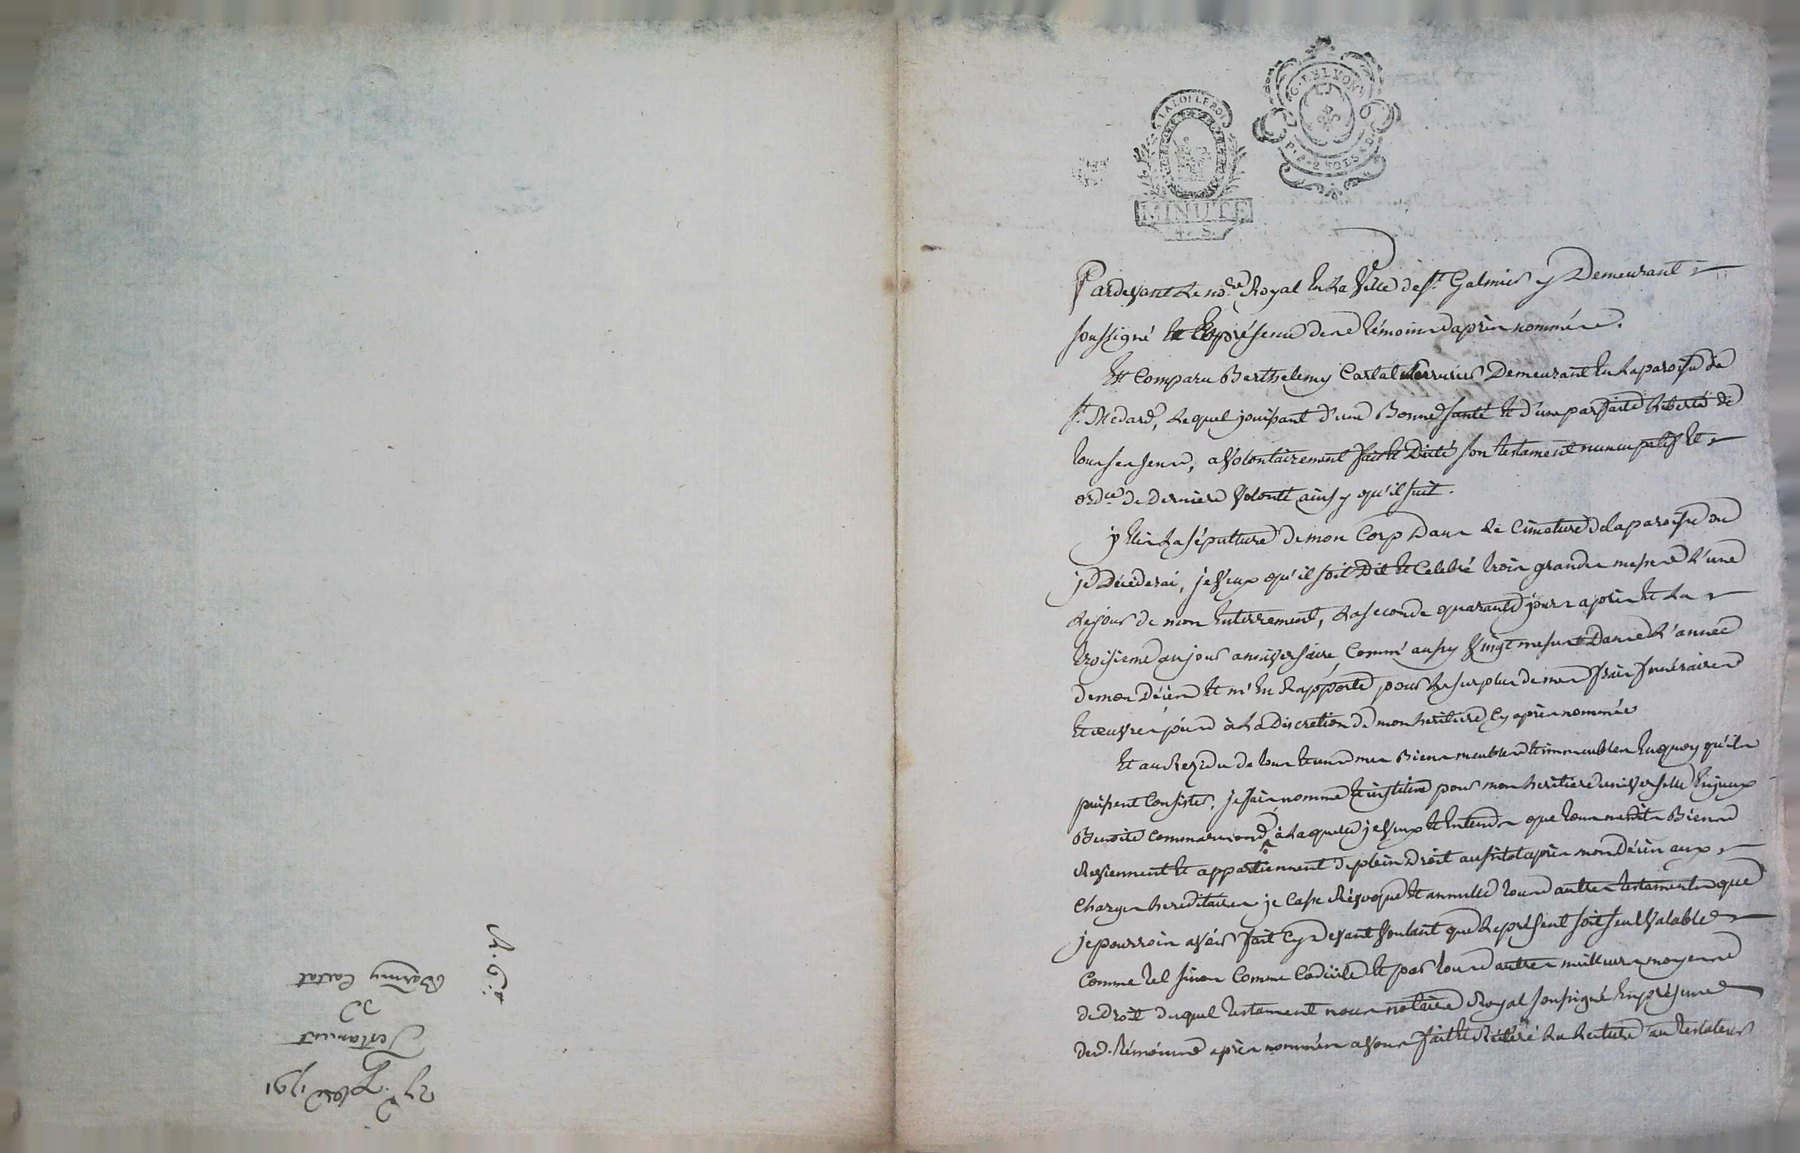 LA LOI LE ROI
MINUTE
4. S.
G. DE LYON
P. P. 2 SOLS 8 D
Pardevant Le no.re Royal En La Ville de st. Galmier y Demeurant
soussigné Et En présence des témoins daprès nommés.
Est Comparu Berthelemy Cartal serrurier Demeurant En La paroisse de
st. Médard, Lequel jouissant d'une Bonne santé Et d'une parfaite Liberté de
tous ses sens, a Volontairement fait Et Dicté son testament nuncupatif Et
ord.ce de Derniere Volonté ainsy qu'il suit.
J'Elis La sépulture de mon Corp Dans Le Cimetiere de La paroisse ou
je Décéderai, je Veux qu'il soit Dit Et Celebré trois grandes messes L'une
Le jour de mon Enterrement, La seconde quarante jours après Et La
troisieme au jour anniversaire, Comme aussy Vingt messes Dans L'année
de mon Décès Et m'En Rapporte pour Le surplus de mes frais funéraires
Et œuvres pies à La Discretion de mon heritiere Cy après nommée
Et au Rezidu de tous Et uns mes Biens meubles Et immeubles En quoy qu'ils
puissent Consister, je fais nomme Et institue pour mon heritiere universelle
Benoite à Laquelle je Veux Et Entends que tous mesdits Biens
Reviennent Et appartiennent de plein Droit aussitot après mon Décès aux
Charges hereditaires je Casse Révoque Et annulle tous autres testaments que
je pourrois avoir fait Cy Devant Voulant que Le présent soit seul Valable
Comme tel sinon Comme Codicile Et par tous autres meilleurs moyens
de Droit duquel testament nous notaire Royal soussigné En présence
desd. témoins après nommés avons fait Et Réitéré La Lecture au testateur
27.e 7bre 1791
Testament
De
Barmy Cartal